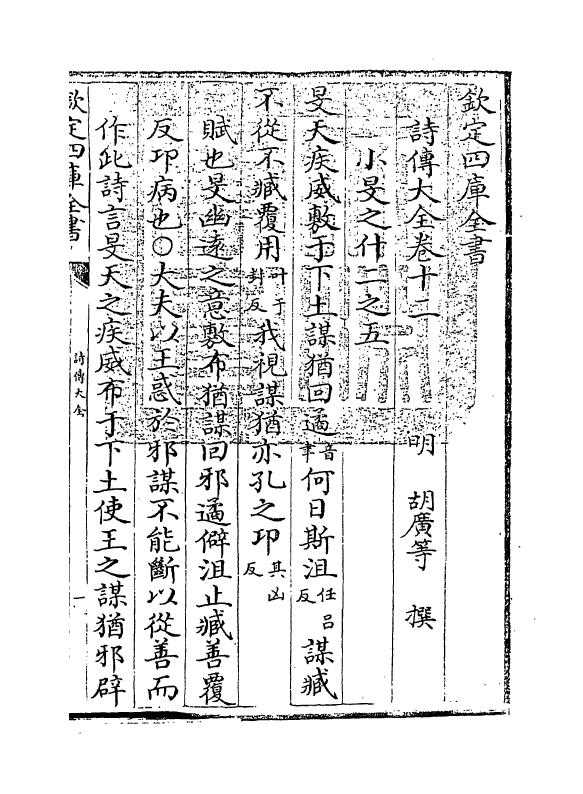 欽定四庫全書
詩傳大全卷十二
明 胡廣等 撰
小旻之什二之五
旻天疾威敷于下土謀猶回遹音聿何日斯沮在呂反謀臧
不從不臧覆用叶于封反我視謀猶亦孔之卭其凶反
賦也旻幽遠之意敷布猶謀回邪遹僻沮止臧善覆
反卭病也○大夫以王惑於邪謀不能斷以從善而
作此詩言旻天之疾威布于下土使王之謀猶邪辟
欽定四庫全書
詩傳大全
一